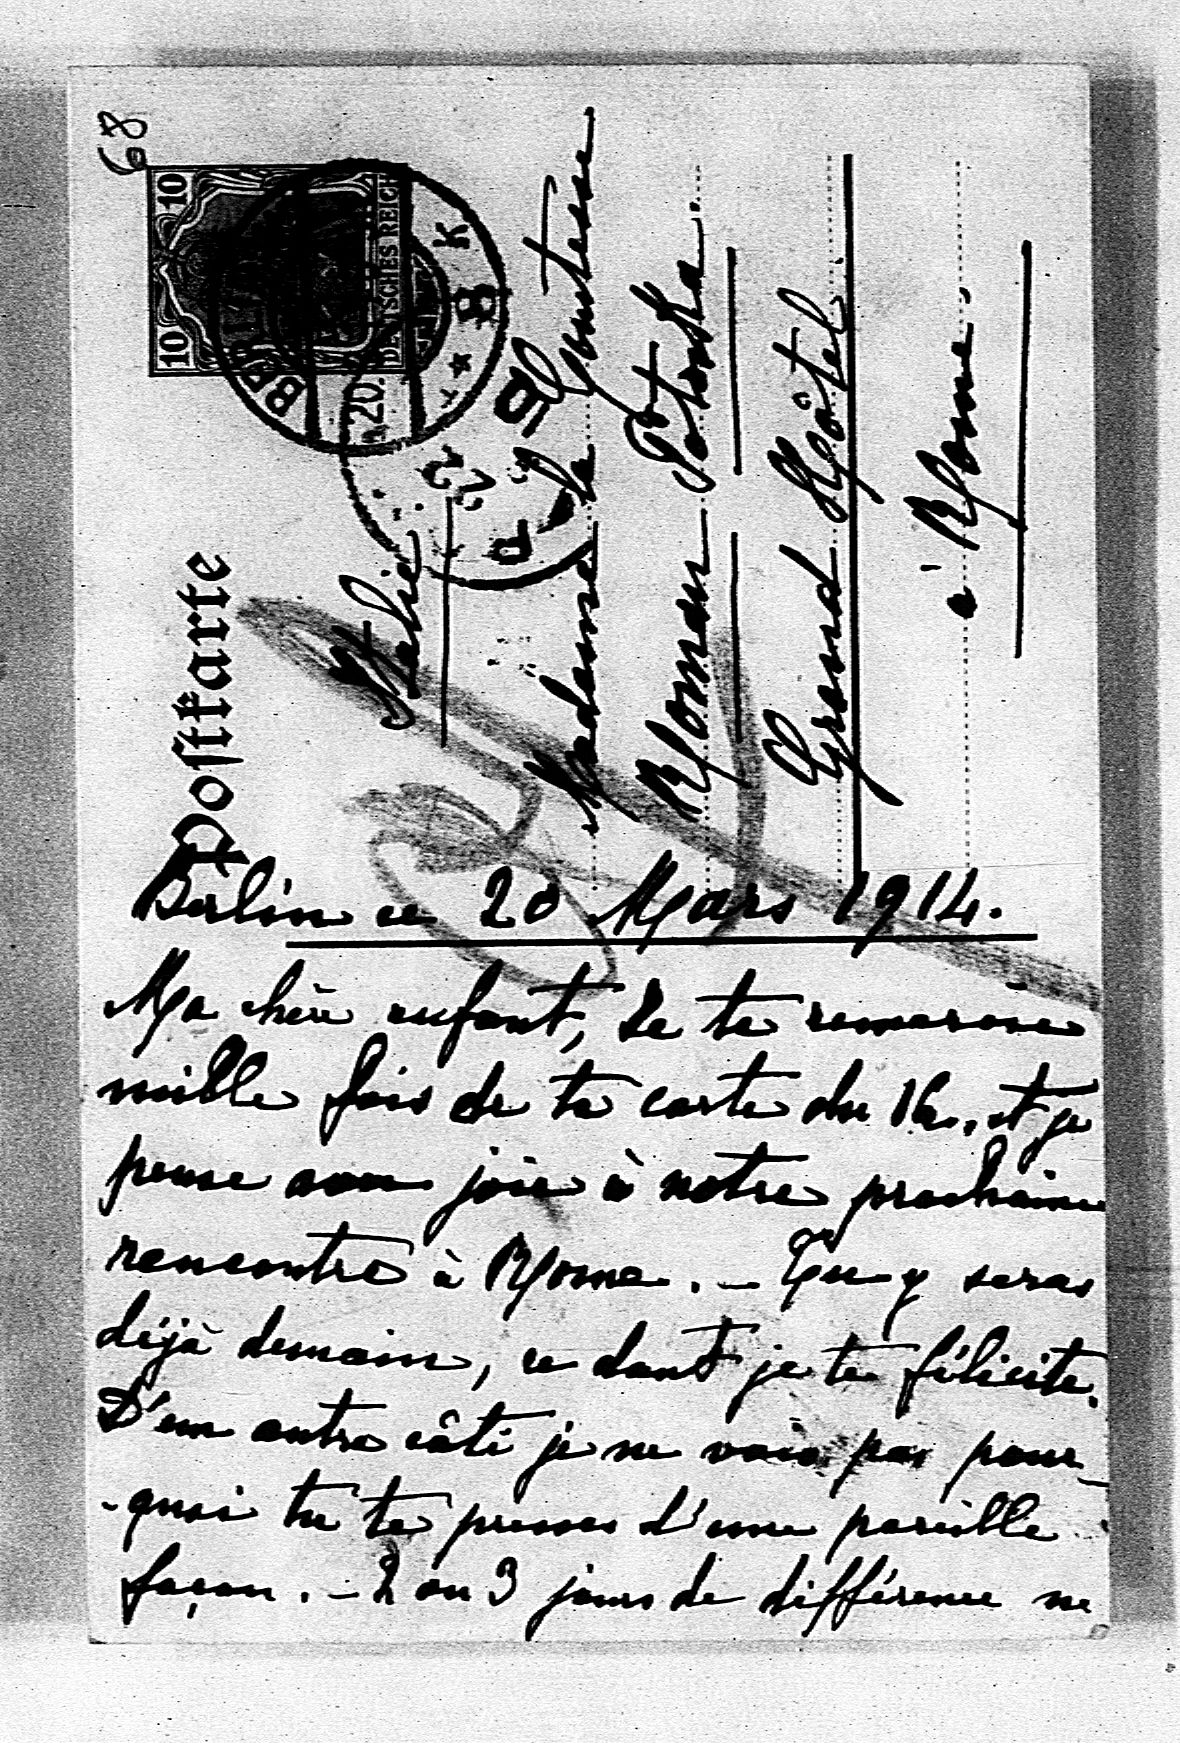 68
10 10
DEUTSCHES REICH
BERLIN
20.
* 8 k
Postkarte
Italie
Madame la Comtesse
Roman Potocka.
Grand Hôtel
à Rome.
Berlin ce 20 Mars 1914.
Ma chère enfant, Je te remercie
mille fois de ta carte du 16., et je
pense avec joie à notre prochaine
rencontre à Rome. – Tu y seras
déjà demain, ce dont je te félicite.
D'un autre côté je ne vois pas pour-
-quoi tu te presses d'une pareille
façon. – 2 ou 3 jours de différence ne